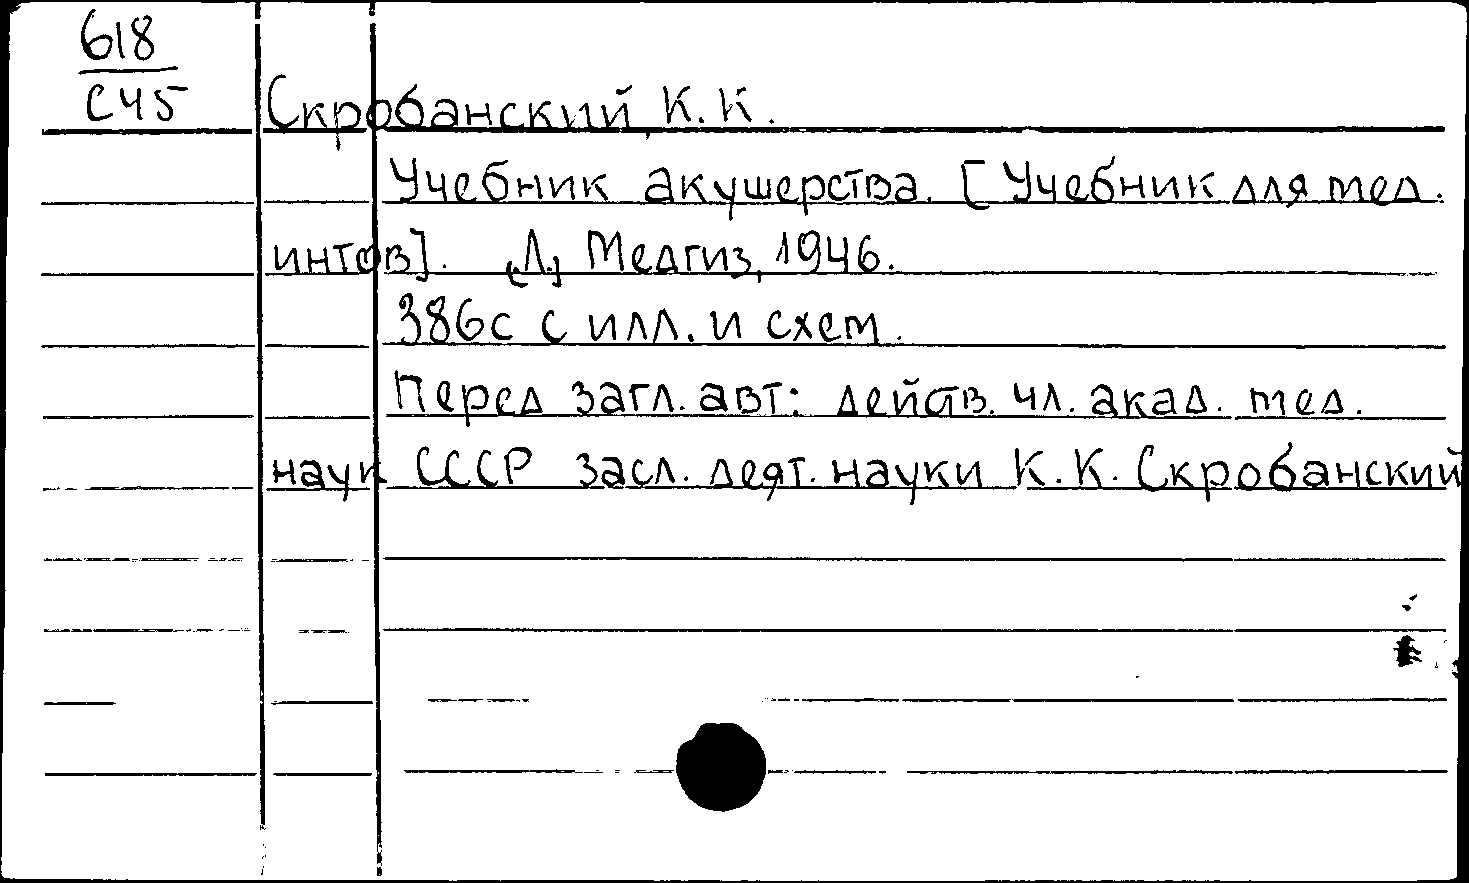 618
С45
Скробанский, К. К.
Учебник акушерства. [Учебник для мед.
интов]. [Л.] Медгиз, 1946.
386с с илл. и схем.
Перед загл. авт: действ. чл. акад. мед.
наук СССР засл. деят. науки К. К. Скробанский